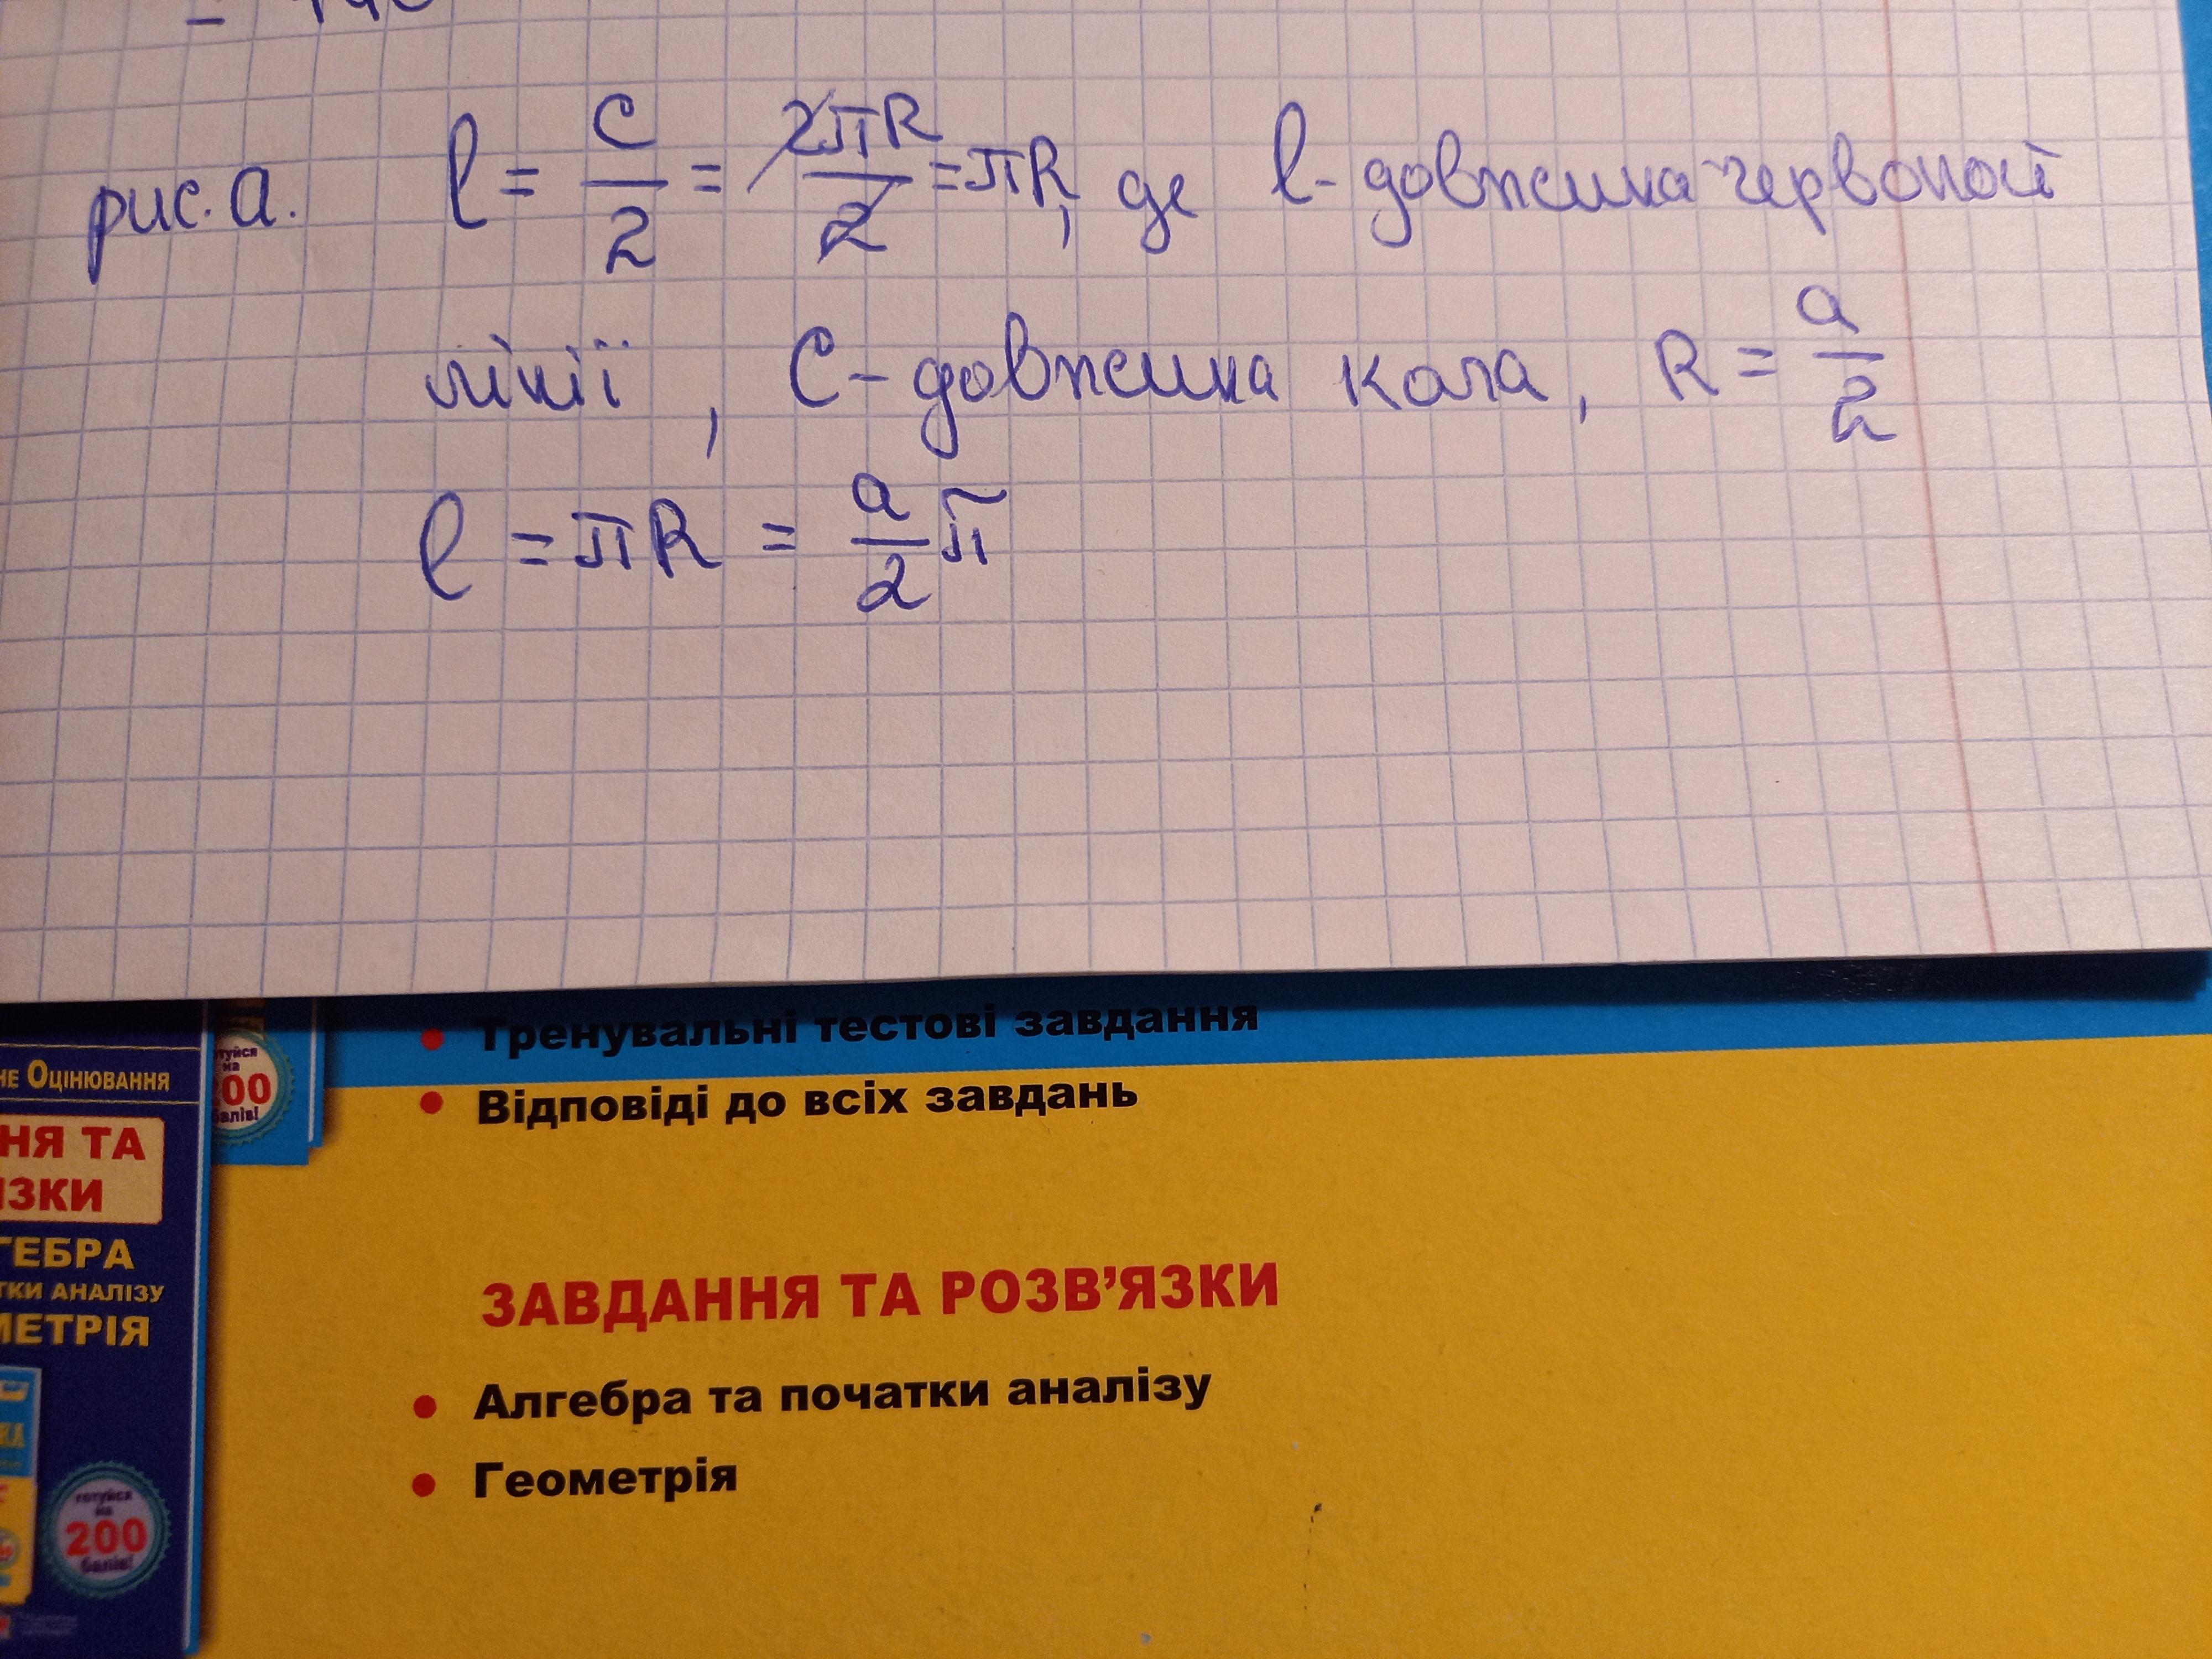 рис. а. l = C/2 = 2πR/2 = πR, де l - довжина червоной
лінії, C - довжина кола, R = a/2
l = πR = a/2 π
• Тренувальні тестові завдання
• Відповіді до всіх завдань
ЗАВДАННЯ ТА РОЗВ'ЯЗКИ
• Алгебра та початки аналізу
• Геометрія
НЕ ОЦІНЮВАННЯ
НЯ ТА
ЗКИ
ГЕБРА
ТКИ АНАЛІЗУ
МЕТРІЯ
туйся
на
200
балів!
готуйся
на
200
балів!